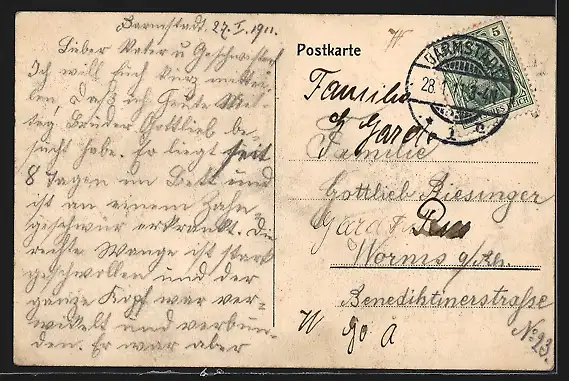 Darmstadt, 27. I. 1911.
Lieber Vater u Geschwister!
Ich will Euch kurz mittei-
len, daß ich heute Mit-
tag Bruder Gottlieb be-
sucht habe. Er liegt seit
8 Tagen im Bett und
ist an einem Zahn-
geschwür erkrankt. Die
rechte Wange ist stark
geschwollen und der
ganze Kopf war ver-
wickelt und verbun-
den. Er war aber
Postkarte
DARMSTADT
28.1.11
* 1
5
Familie
Garde
Familie
Gottlieb Biesinger
Worms a/Rh.
Benediktinerstraße
No 23.